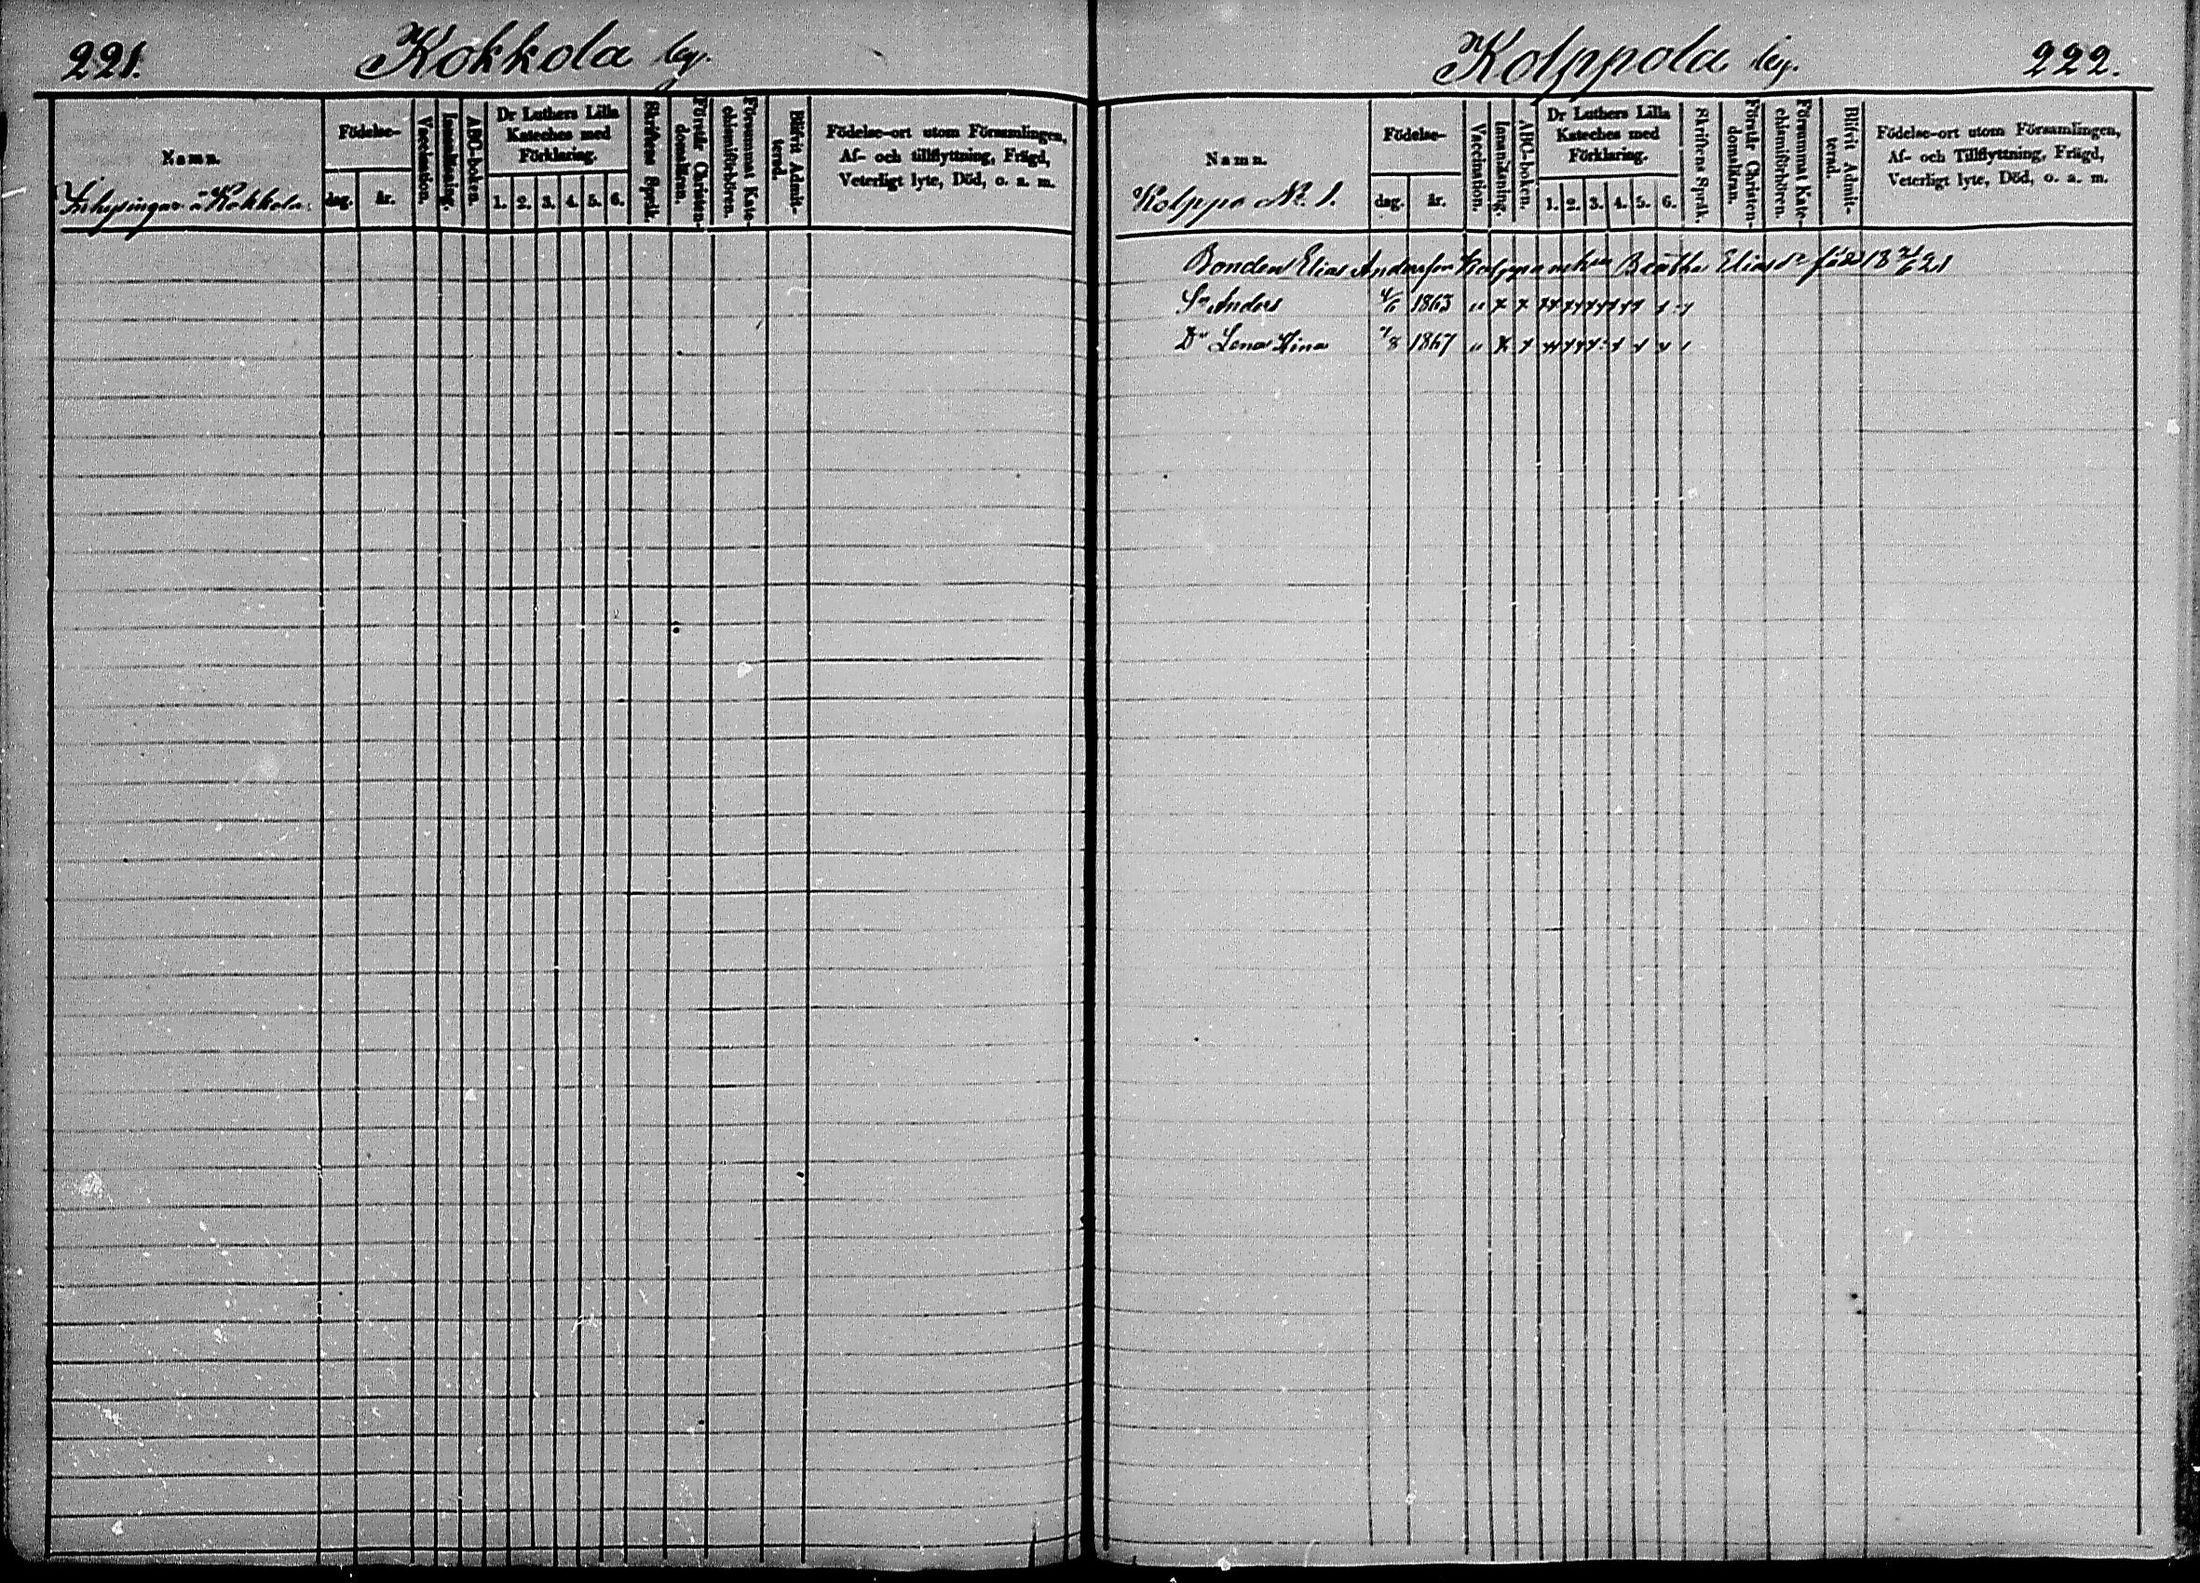 221. Kokkola by.
Namn.
Inhysingar å Kokkola.
Födelse-
dag. år.
Vaccination.
Innanläsning.
ABC-boken.
Dr Luthers Lilla
Kateches med
Förklaring.
1. 2. 3. 4. 5. 6.
Skriftens Språk.
Förstår Christen-
domsläran.
Försummat Kate-
chismiförhören.
Blifvit Admit-
terad.
Födelse-ort utom Församlingen,
Af- och tillflyttning, Frägd,
Veterligt lyte, Död, o. s. m.
Kolppola by. 222.
Namn.
Kolppo No 1.
Födelse-
dag. år.
Vaccination.
Innanläsning.
ABC-boken.
Dr Luthers Lilla
Kateches med
Förklaring.
1. 2. 3. 4. 5. 6.
Skriftens Språk.
Förstår Christen-
domsläran.
Försummat Kate-
chismiförhören.
Blifvit Admit-
terad.
Födelse-ort utom Församlingen,
Af- och Tillflyttning, Frägd,
Veterligt lyte, Död, o. a. m.
Bonden Elias Andersson Kolppo Elias
Sn Anders 1863
Dr Lena Stina 1867